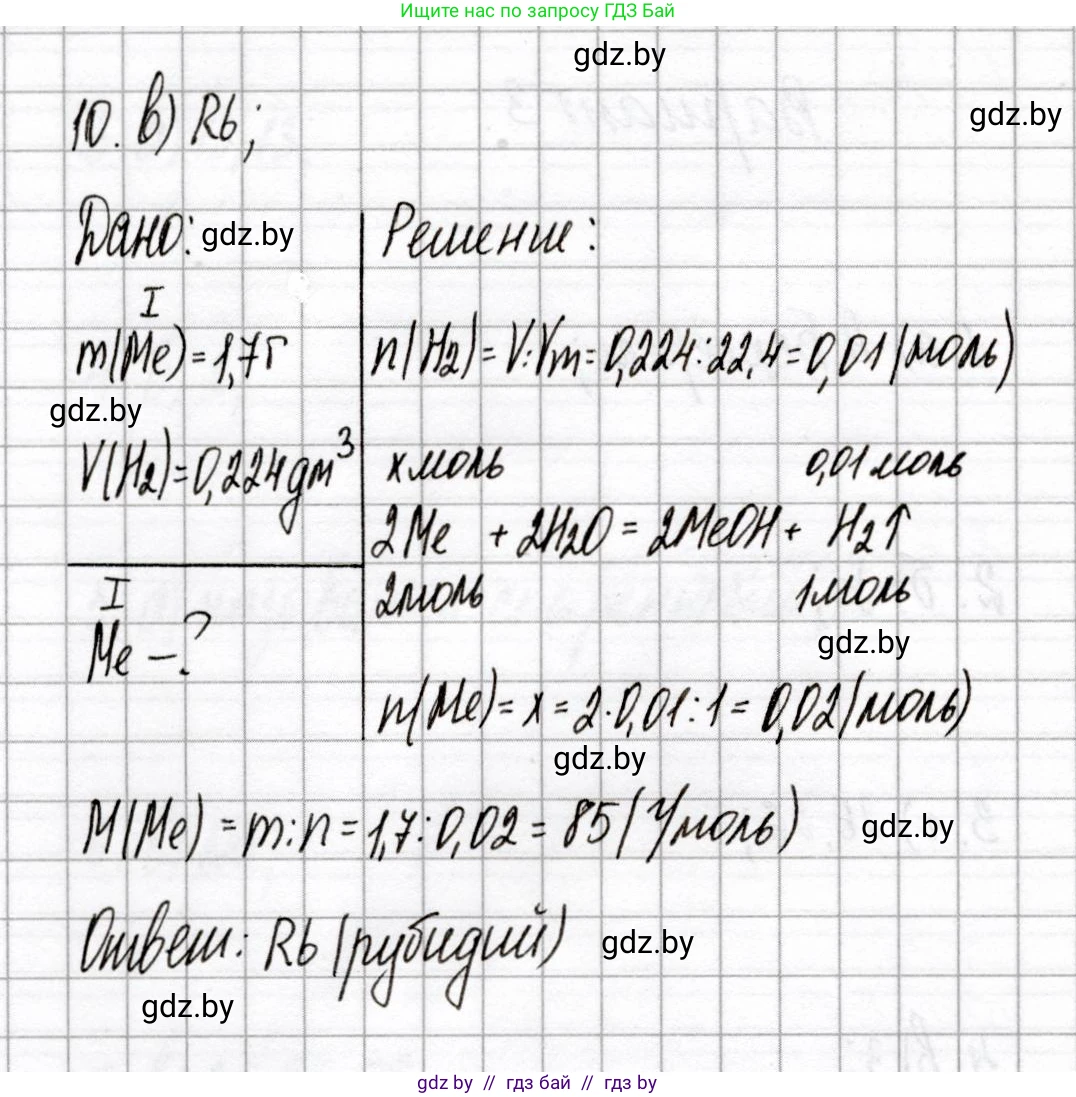 Ищите нас по запросу ГДЗ Бай
gdz.by
10. в) Rb;
gdz.by
Дано: gdz.by
Решение:
I
m(Me) = 1,7 г
n(H2) = V:Vm = 0,224:22,4 = 0,01 (моль)
gdz.by
V(H2) = 0,224 дм3
x моль 0,01 моль
2Me + 2H2O = 2MeOH + H2↑
I
2 моль 1 моль
Me – ?
gdz.by
n(Me) = x = 2·0,01:1 = 0,02 (моль)
gdz.by
M(Me) = m:n = 1,7:0,02 = 85 (г/моль)
gdz.by
Ответ: Rb (рубидий)
gdz.by
gdz.by
gdz by // гдз бай // гдз by